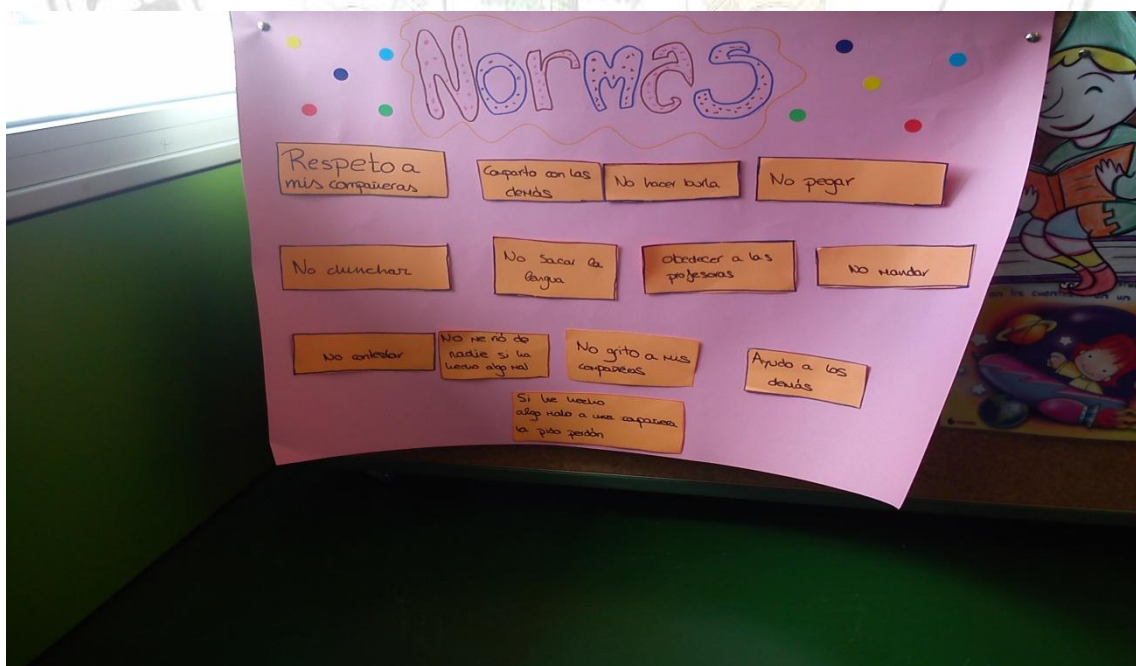 Normas
Respeto a
mis compañeras
Comparto con las
demás
No hacer burla
No pegar
No chinchar
No sacar la
lengua
Obedecer a las
profesoras
No mandar
No contestar
No me río de
nadie si ha
hecho algo mal
No grito a mis
compañeras
Ayudo a los
demás
Si he hecho
algo malo a una compañera
la pido perdón